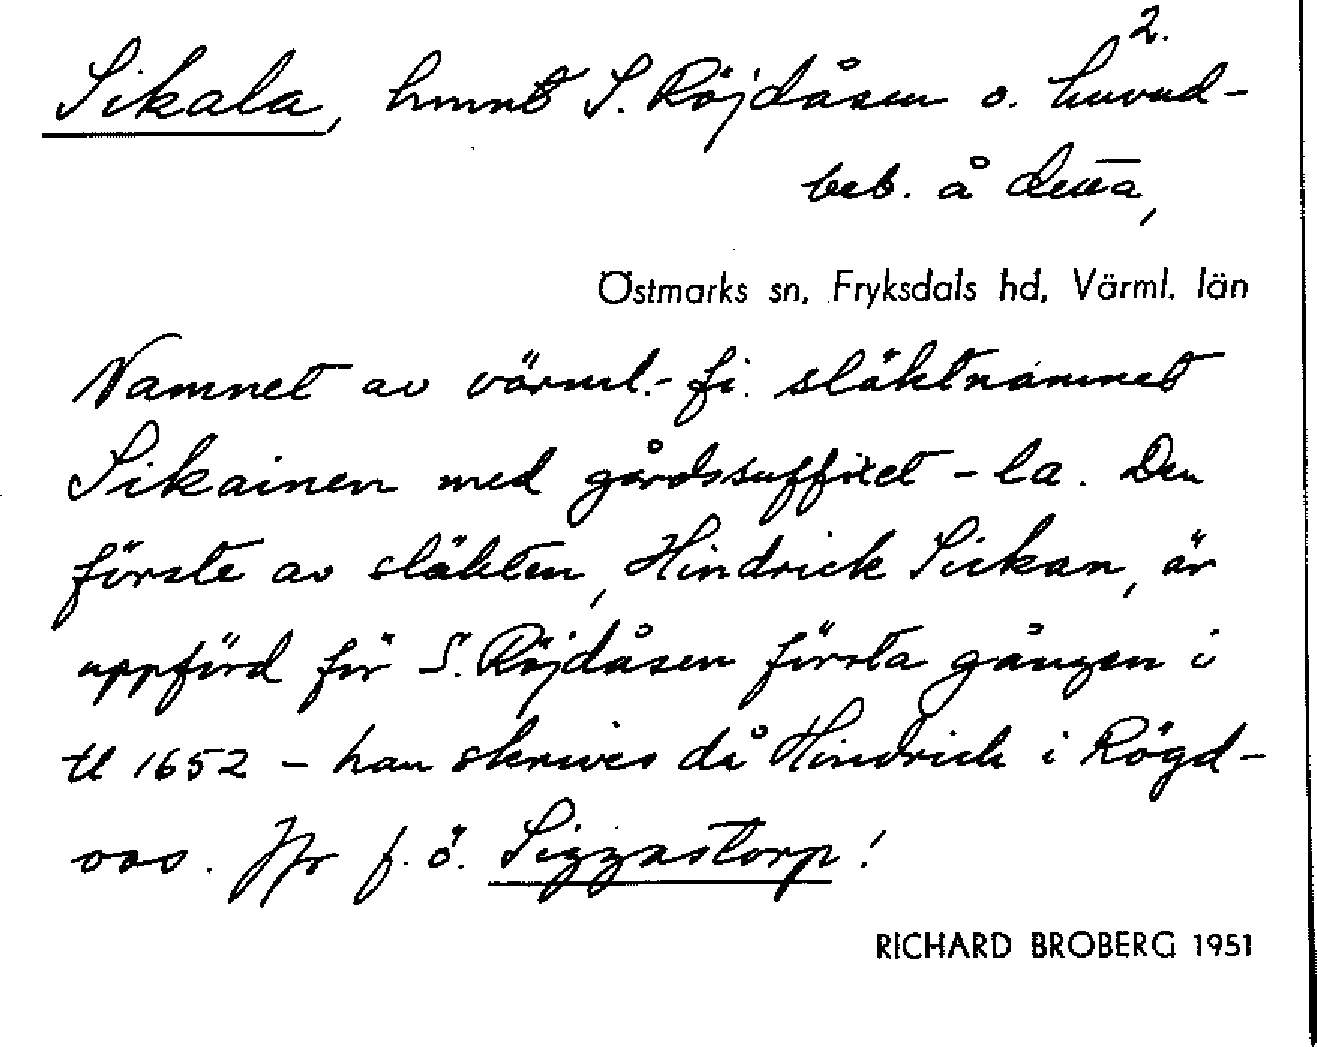 2.
Sikala, hmnt S. Röjdåsen o. huvud-
beb. å detta,
Östmarks sn, Fryksdals hd, Värml. län
Namnet av värml.-fi. släktnamnet
Sikainen med gårdssuffixet -la. Den
förste av släkten, Hindrick Siikan, är
uppförd för S. Röjdåsen första gången i
tl 1652 - han skrives då Hindrich i Rögd-
oos. Jfr f. ö. Siggastorp!
RICHARD BROBERG 1951